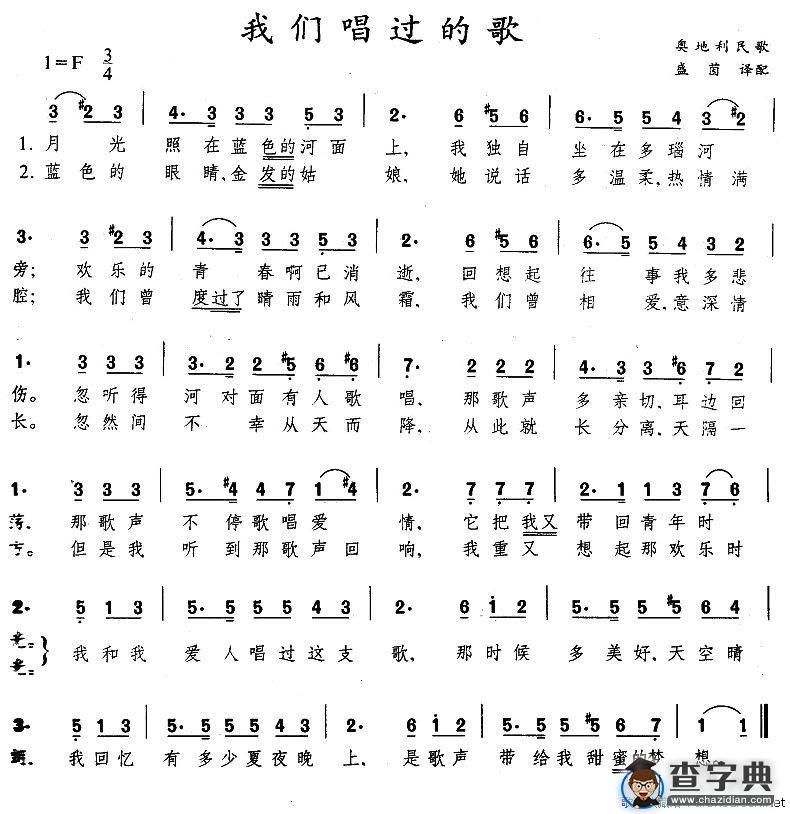 我们唱过的歌
1=F 3/4
奥地利民歌
盛茵 译配
3 #2 3 | 4· 3 3 3 5 3 | 2· 6 #5 6 | 6· 5 5 4 3 #2 |
1. 月光照在蓝色的河面上,我独自坐在多瑙河
2. 蓝色的眼睛,金发的姑娘,她说话多温柔,热情满
3· 3 #2 3 | 4· 3 3 3 5 3 | 2· 6 #5 6 | 6· 5 5 4 3 2 |
旁;欢乐的青春啊已消逝,回想起往事我多悲
腔;我们曾度过了晴雨和风霜,我们曾相爱,意深情
1· 3 3 3 | 3· 2 2 #5 6 #6 | 7· 2 2 2 | 4· 3 3 #6 7 2 |
伤。忽听得河对面有人歌唱,那歌声多亲切,耳边回
长。忽然间不幸从天而降,从此就长分离,天隔一
1· 3 3 3 | 5· #4 4 7 1 #4 | 2· 7 7 7 | 2· 1 1 3 7 6 |
荡,那歌声不停歌唱爱情,它把我又带回青年时
方。但是我听到那歌声回响,我重又想起那欢乐时
2· 5 1 3 | 5· 5 5 5 4 3 | 2· 6 1 2 | 5· 5 5 #5 6 4 |
我和我爱人唱过这支歌,那时候多美好,天空晴
3· 5 1 3 | 5· 5 5 5 4 3 | 2· 6 1 2 | 5· 5 5 #5 6 7 | 1 1 ‖
我回忆有多少夏夜晚上,是歌声带给我甜蜜的梦想。
查字典
www.chazidian.com